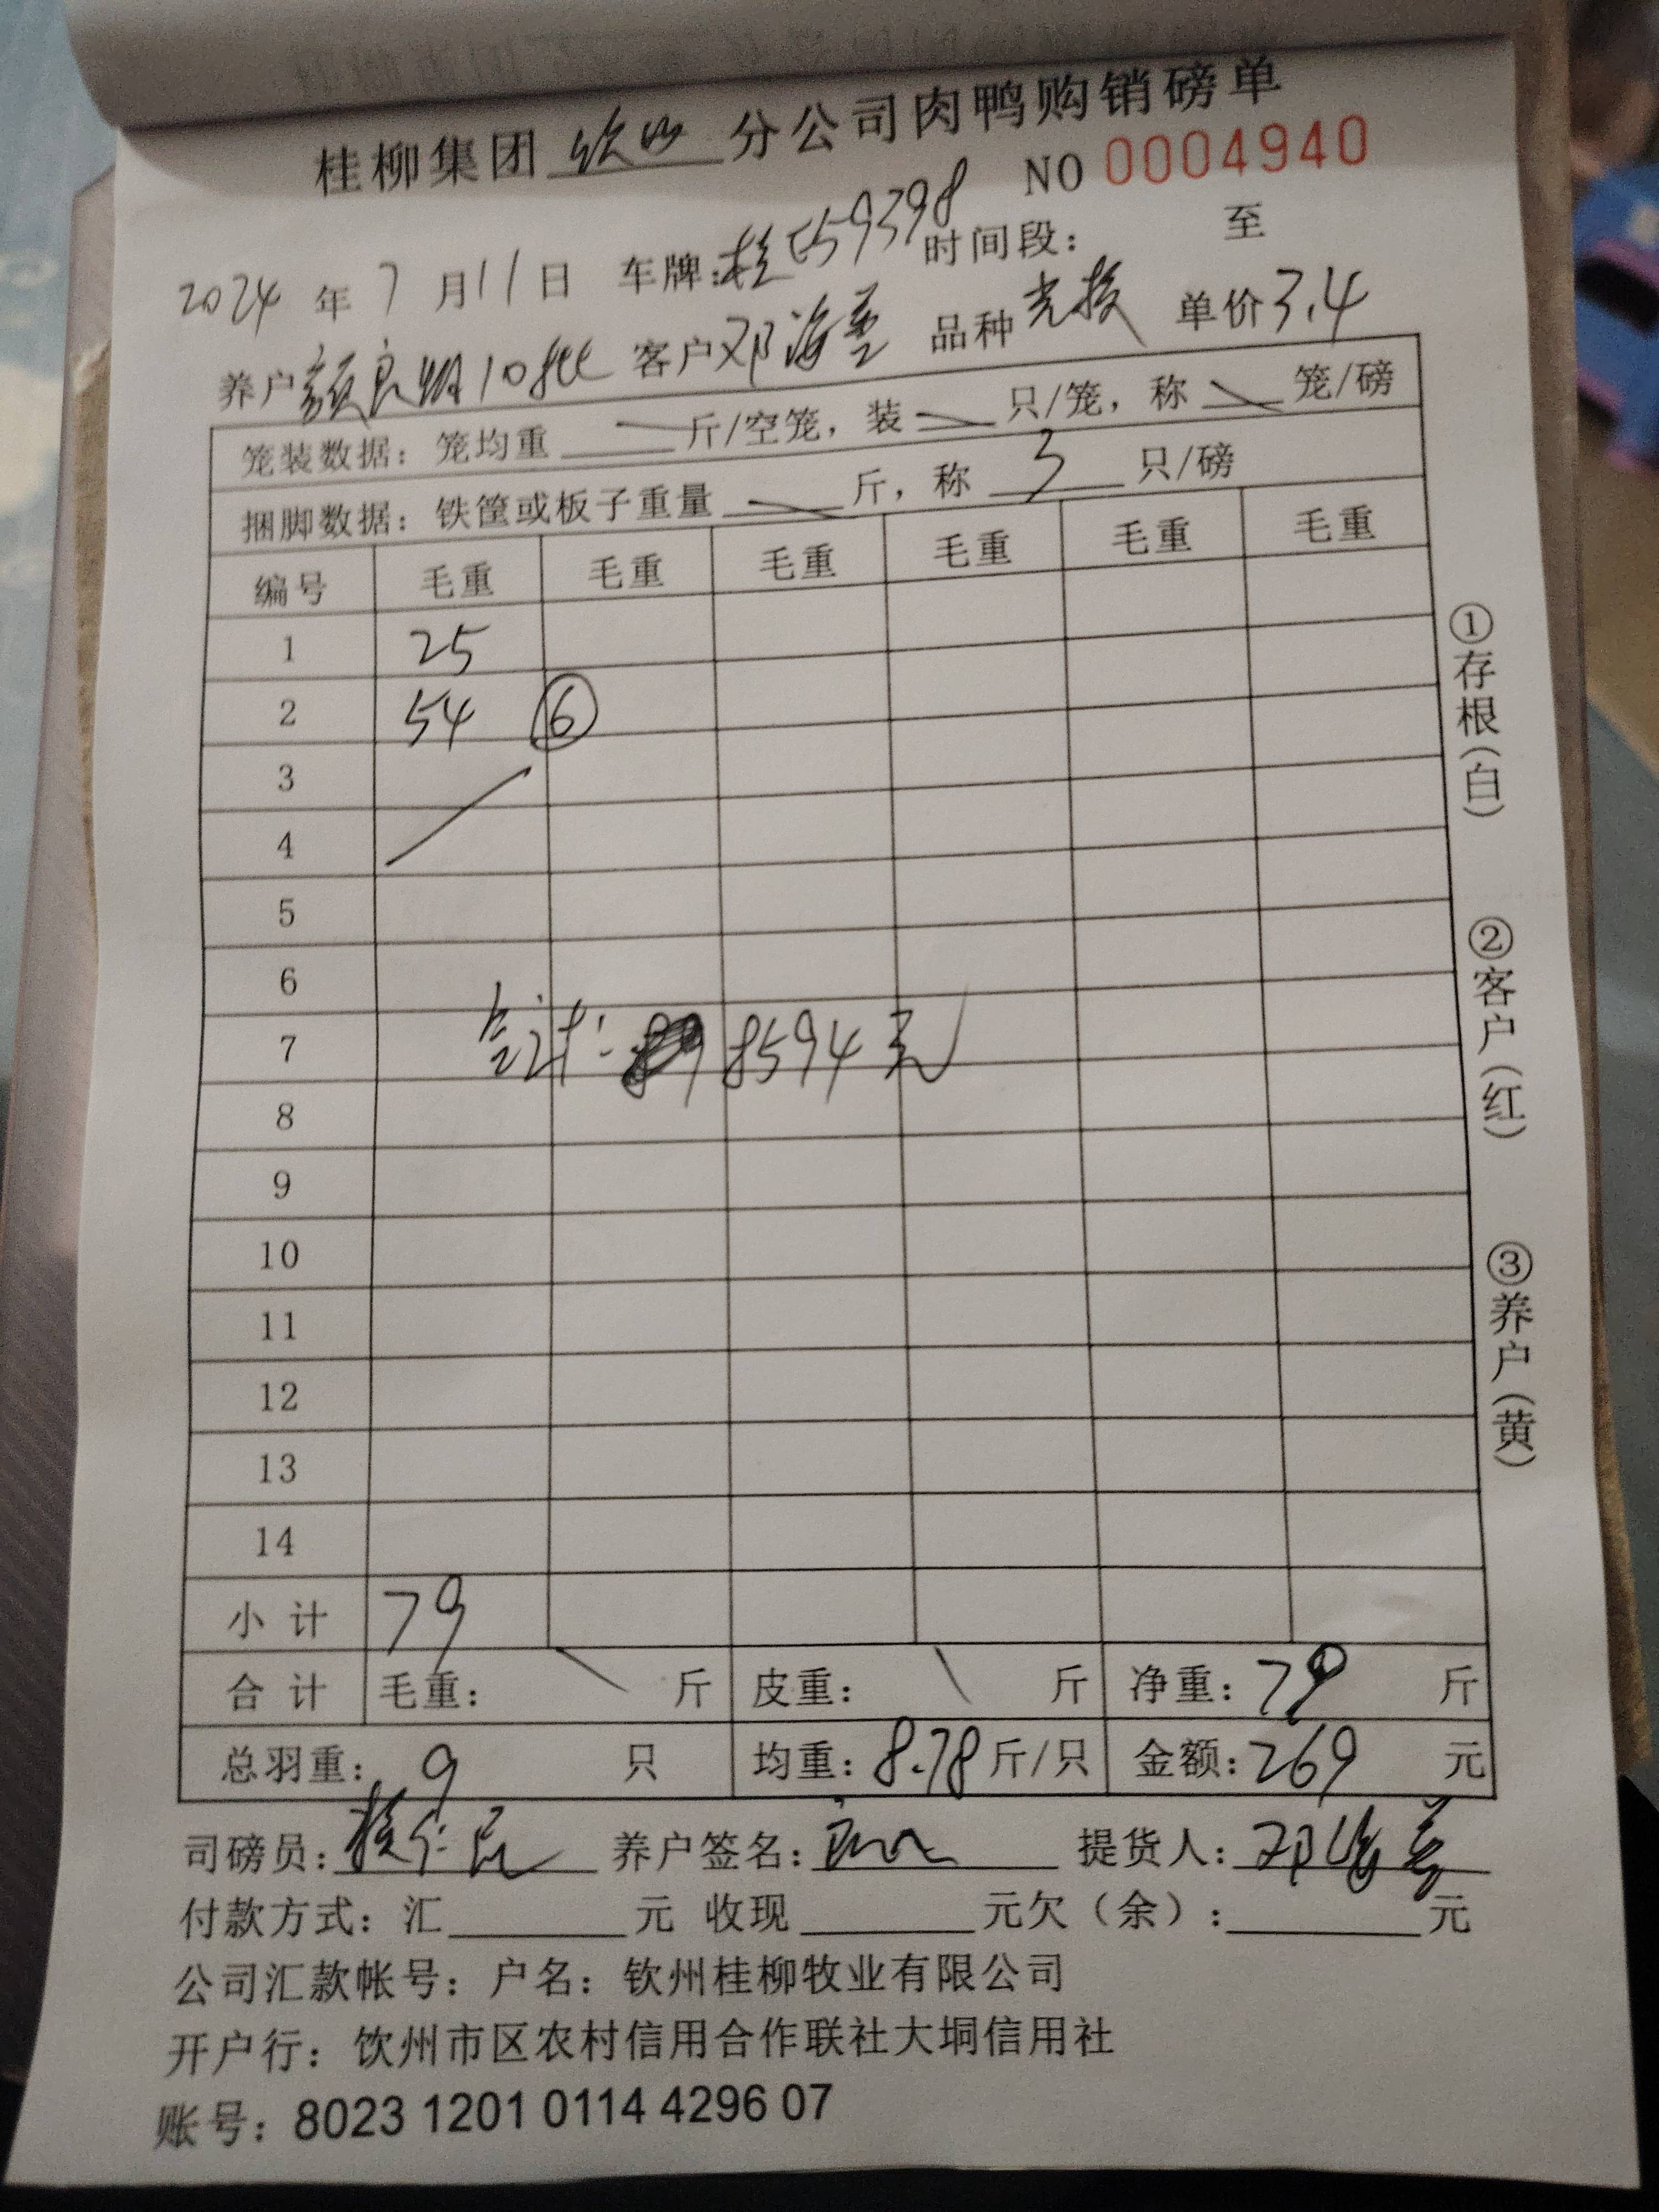 桂柳集团 钦州 分公司肉鸭购销磅单
NO 0004940
2024 年 7 月 11 日 车牌: 桂 59398 时间段: 至
养户 颜 10批 客户 邓海 品种 单价 3.4
笼装数据: 笼均重 斤/空笼, 装 只/笼, 称 笼/磅
捆脚数据: 铁筐或板子重量 斤, 称 3 只/磅
编号 毛重 毛重 毛重 毛重 毛重 毛重
1 25
2 54 ⑥
3
4
5
6
7 合计: 8594元
8
9
10
11
12
13
14
小 计 79
合 计 毛重: 斤 皮重: 斤 净重: 79 斤
总羽重: 9 只 均重: 8.78 斤/只 金额: 269 元
司磅员: 养户签名: 提货人: 邓海
付款方式: 汇 元 收现 元欠(余): 元
公司汇款帐号: 户名: 钦州桂柳牧业有限公司
开户行: 饮州市区农村信用合作联社大垌信用社
账号: 8023 1201 0114 4296 07
①存根(白)
②客户(红)
③养户(黄)